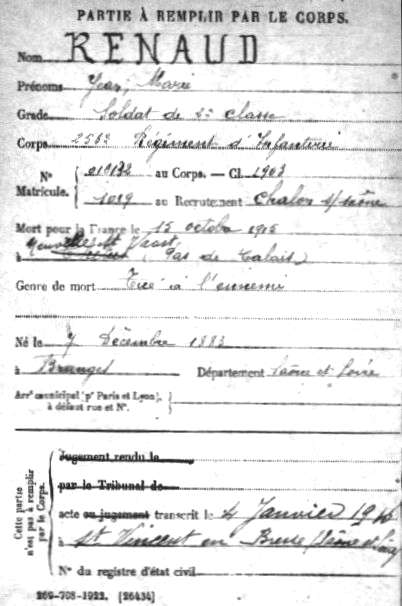 PARTIE À REMPLIR PAR LE CORPS.
Nom RENAUD
Prénoms Jean, Marie
Grade Soldat de 2e classe
Corps 256e Régiment d'Infanterie
N° 010132 au Corps. — Cl. 1903
Matricule. 1019 au Recrutement Chalon s/ Saône
Mort pour la France le 15 octobre 1915
Neuville St Vaast,
à (Pas de Calais)
Genre de mort Tué à l'ennemi
Né le 7 Décembre 1883
à Branges Département Saône et Loire
Arrt municipal (pr Paris et Lyon),
à défaut rue et N°.
Cette partie
n'est pas à remplir
par le Corps.
Jugement rendu le
par le Tribunal de
acte ou jugement transcrit le 4 Janvier 19
à St Vincent en Bresse (Saône et Loire)
N° du registre d'état civil
269-708-1922. [26434]